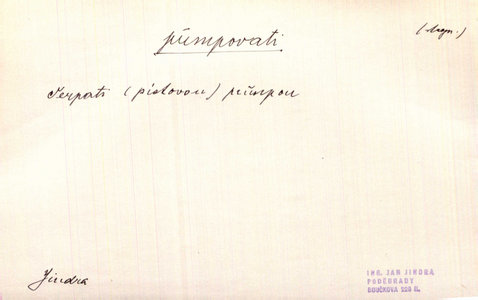 půmpovati
čerpati (pístovou) půmpou
Jindra
ING. JAN JINDRA
PODĚBRADY
BOUČKOVA 229 II.